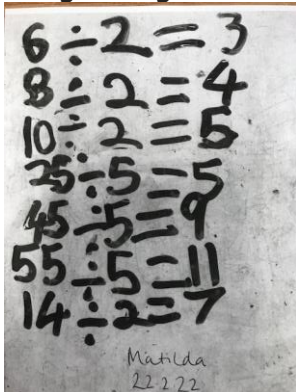 6÷2=3
8÷2=4
10÷2=5
25÷5=5
45÷5=9
55÷5=11
14÷2=7
Matilda
22222